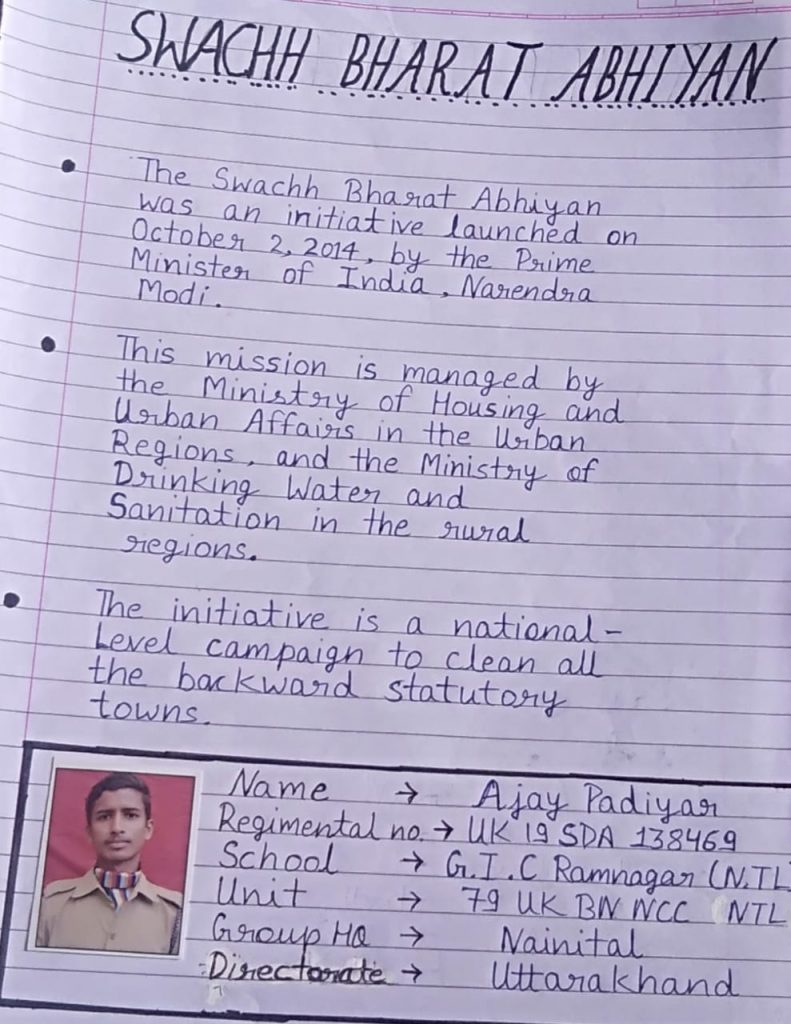 SWACHH BHARAT ABHIYAN
• The Swachh Bharat Abhiyan
was an initiative launched on
October 2, 2014, by the Prime
Minister of India, Narendra
Modi.
• This mission is managed by
the Ministry of Housing and
Urban Affairs in the Urban
Regions, and the Ministry of
Drinking Water and
Sanitation in the rural
regions.
• The initiative is a national-
Level campaign to clean all
the backward statutory
towns.
Name → Ajay Padiyar
Regimental no. → UK 19 SDA 138469
School → G.I.C Ramnagar (N.TL
Unit → 79 UK BN NCC NTL
Group HQ → Nainital
Directorate → Uttarakhand